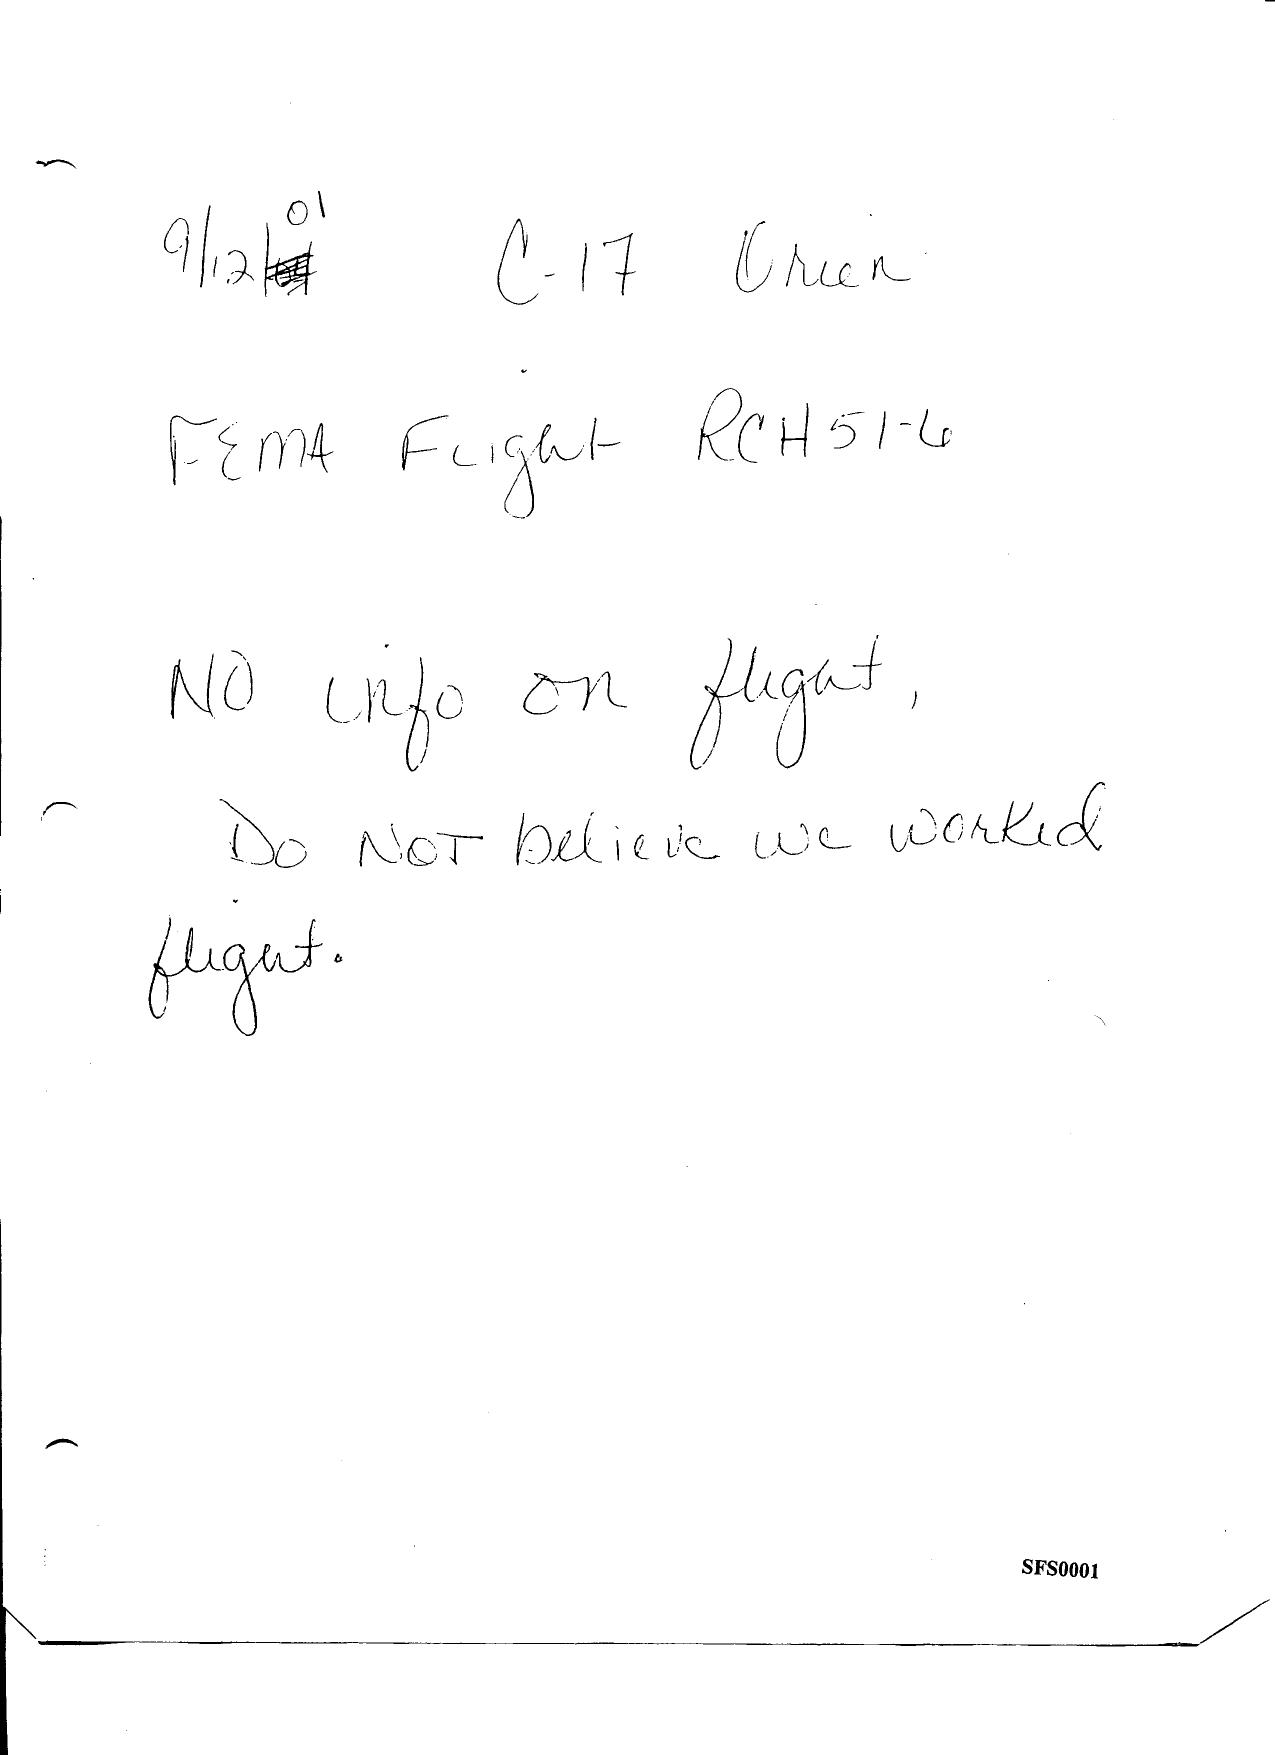 9/12/01 C-17 Green
FEMA Flight RCH51-6
NO info on flight,
Do NOT believe we worked
flight.
SFS0001